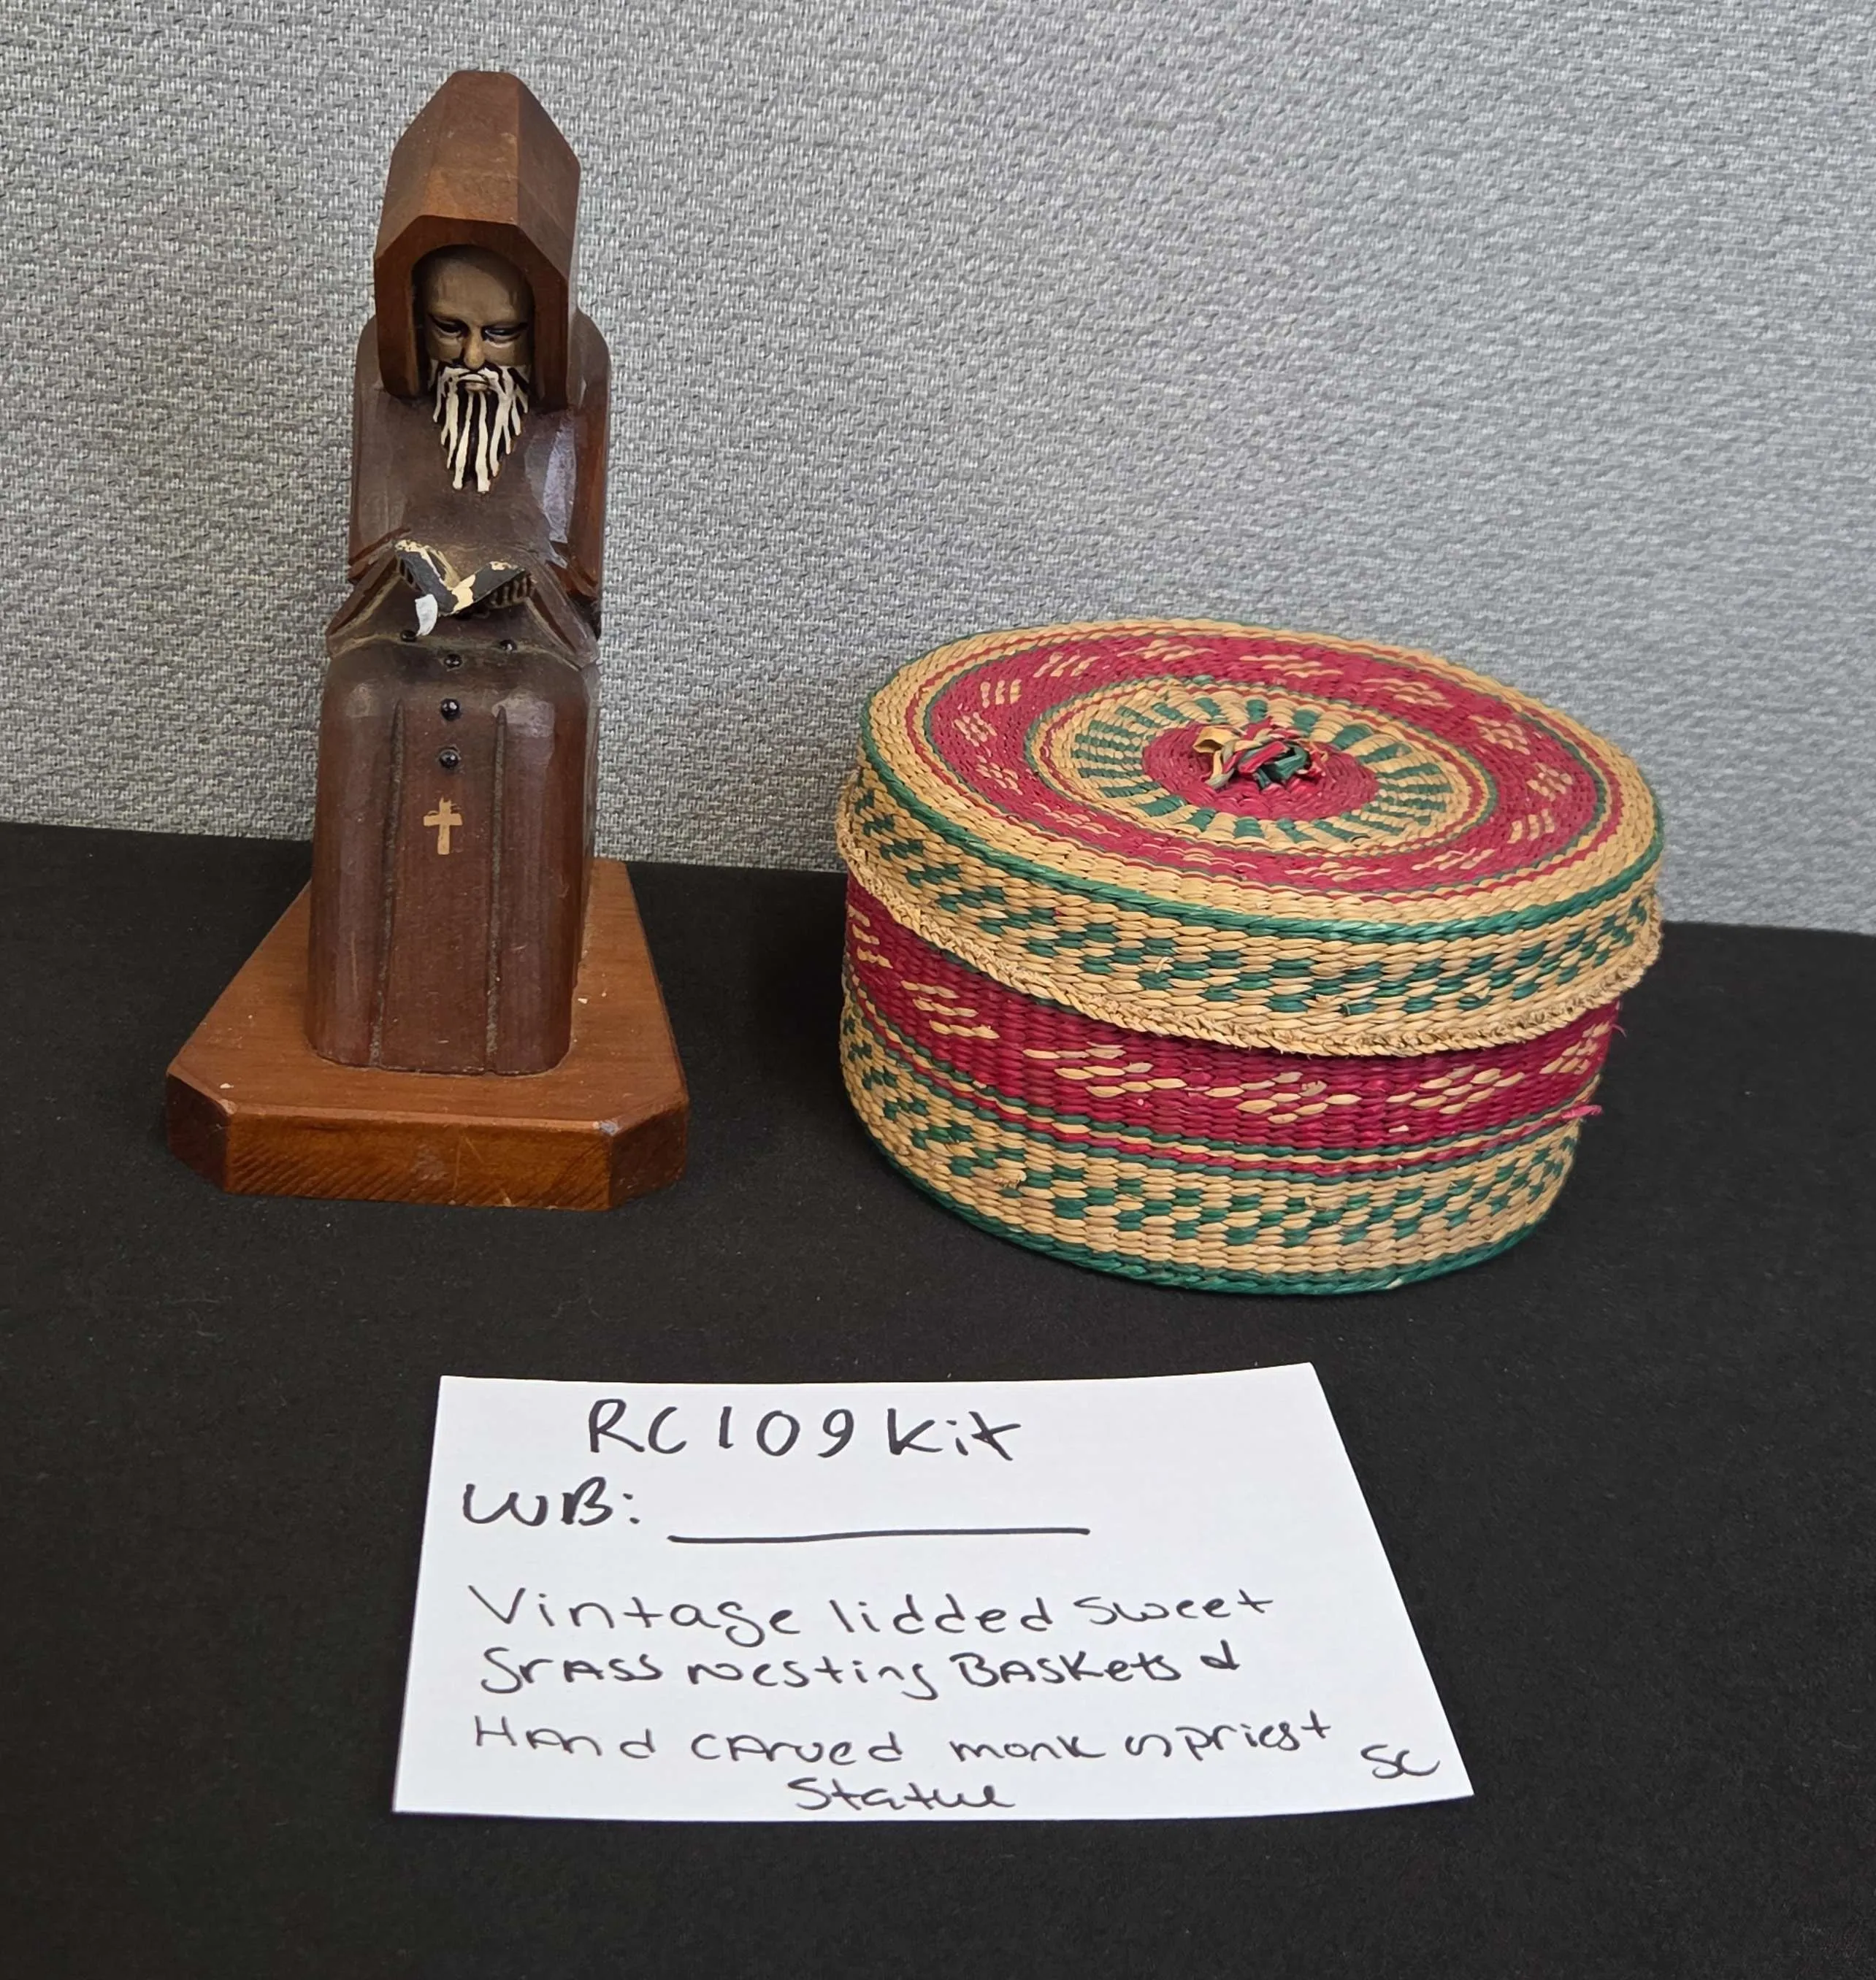 RC109 Kit
WB:
Vintage lidded sweet
grass nesting BASKets &
HAnd cArved monk or priest
statue
SC